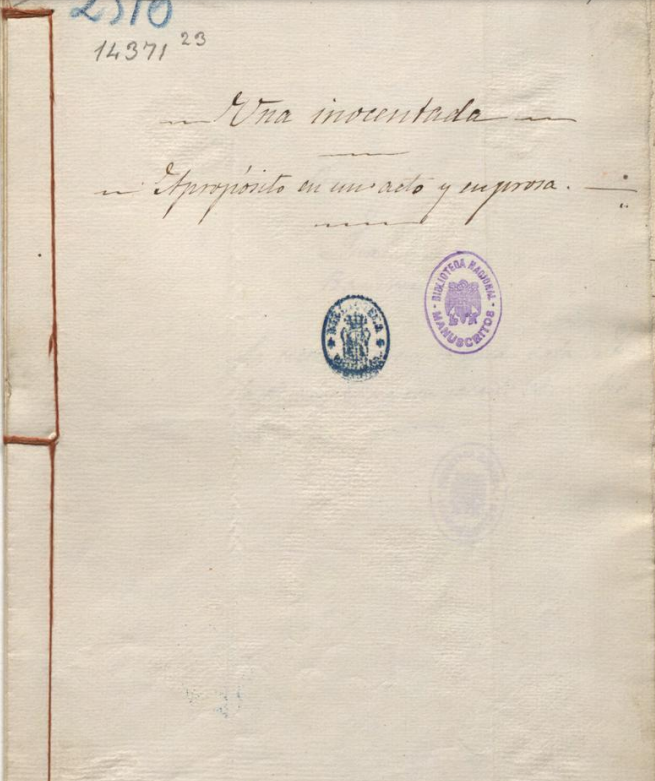 2510
14371 23
Una inocentada
Apropósito en un acto y en prosa.
BIBLIOTECA NACIONAL
MANUSCRITOS